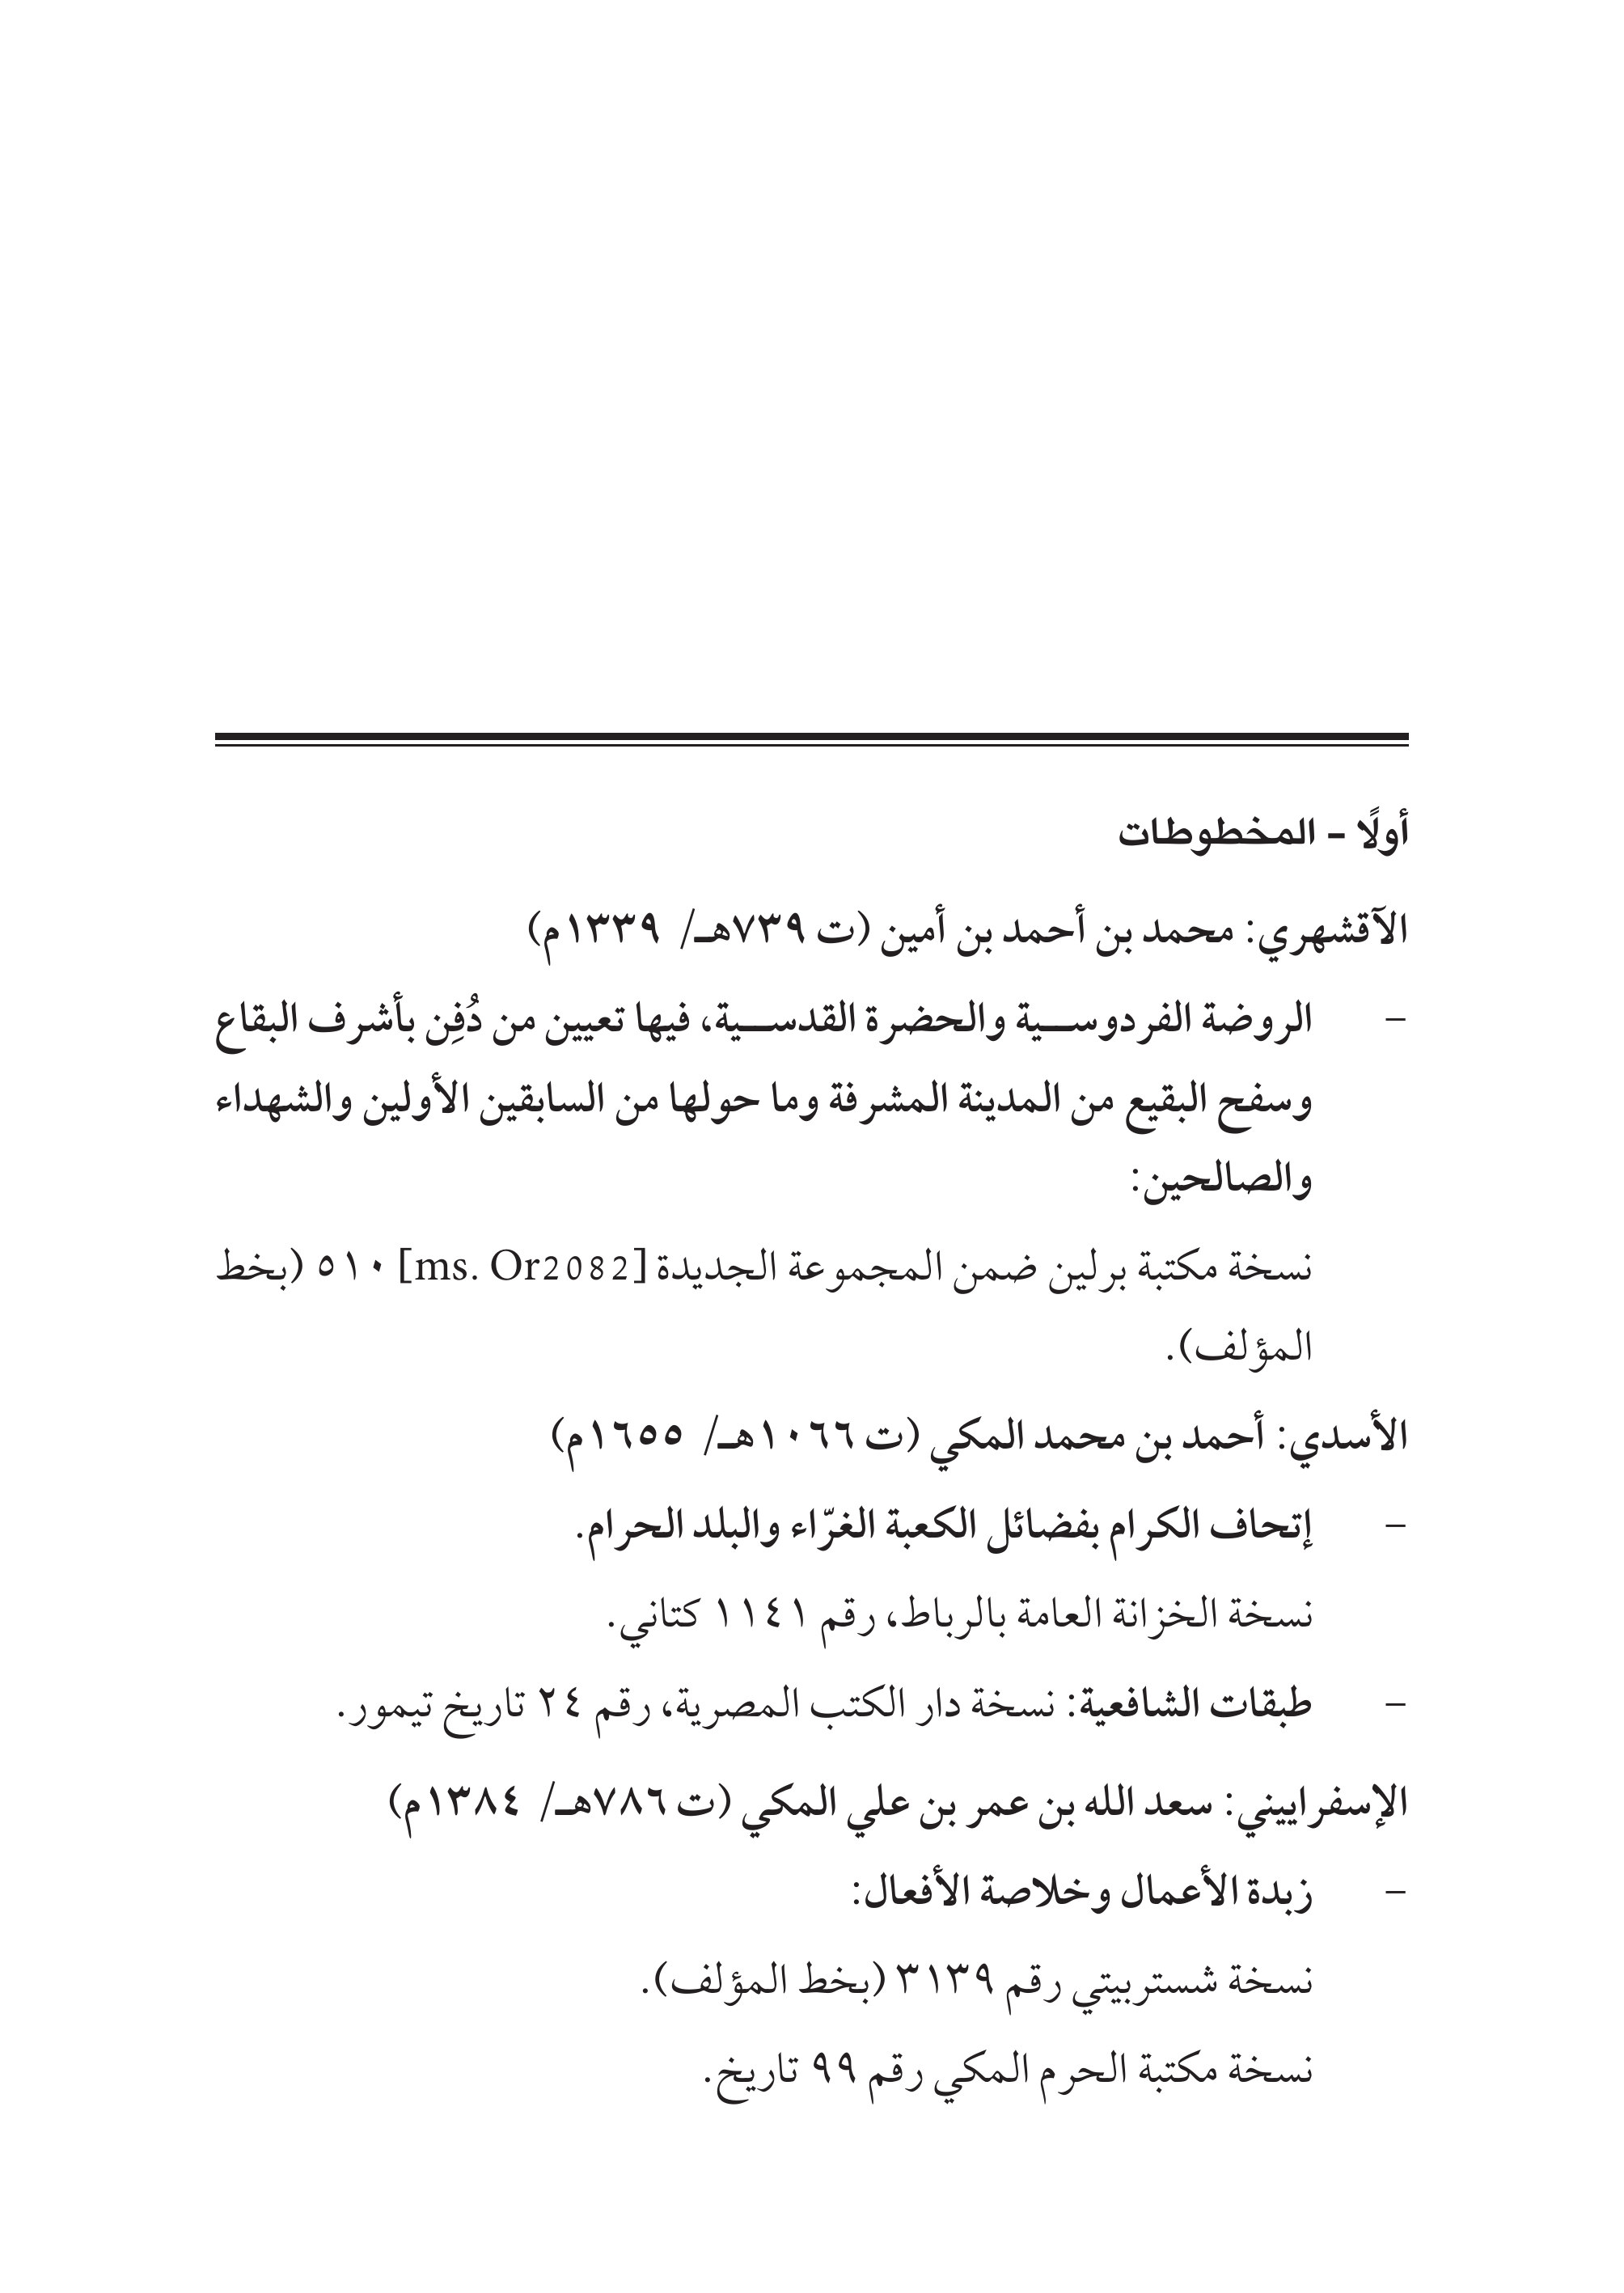 أولًا – المخطوطات
الآقشهري: محمد بن أحمد بن أمين (ت ٧٣٩هـ/ ١٣٣٩م)
– الروضة الفردوسـية والحضرة القدسـية، فيها تعيين من دُفِن بأشرف البقاع
وسفح البقيع من المدينة المشرفة وما حولها من السابقين الأولين والشهداء
والصالحين:
نسخة مكتبة برلين ضمن المجموعة الجديدة [ms. Or2082] ٥١٠ (بخط
المؤلف).
الأسدي: أحمد بن محمد المكي (ت ١٠٦٦هـ/ ١٦٥٥م)
– إتحاف الكرام بفضائل الكعبة الغرّاء والبلد الحرام.
نسخة الخزانة العامة بالرباط، رقم ١١٤١ كتاني.
– طبقات الشافعية: نسخة دار الكتب المصرية، رقم ٢٤ تاريخ تيمور.
الإسفراييني: سعد الله بن عمر بن علي المكي (ت ٧٨٦هـ/ ١٣٨٤م)
– زبدة الأعمال وخلاصة الأفعال:
نسخة شستربيتي رقم ٣١٣٩ (بخط المؤلف).
نسخة مكتبة الحرم المكي رقم ٩٩ تاريخ.